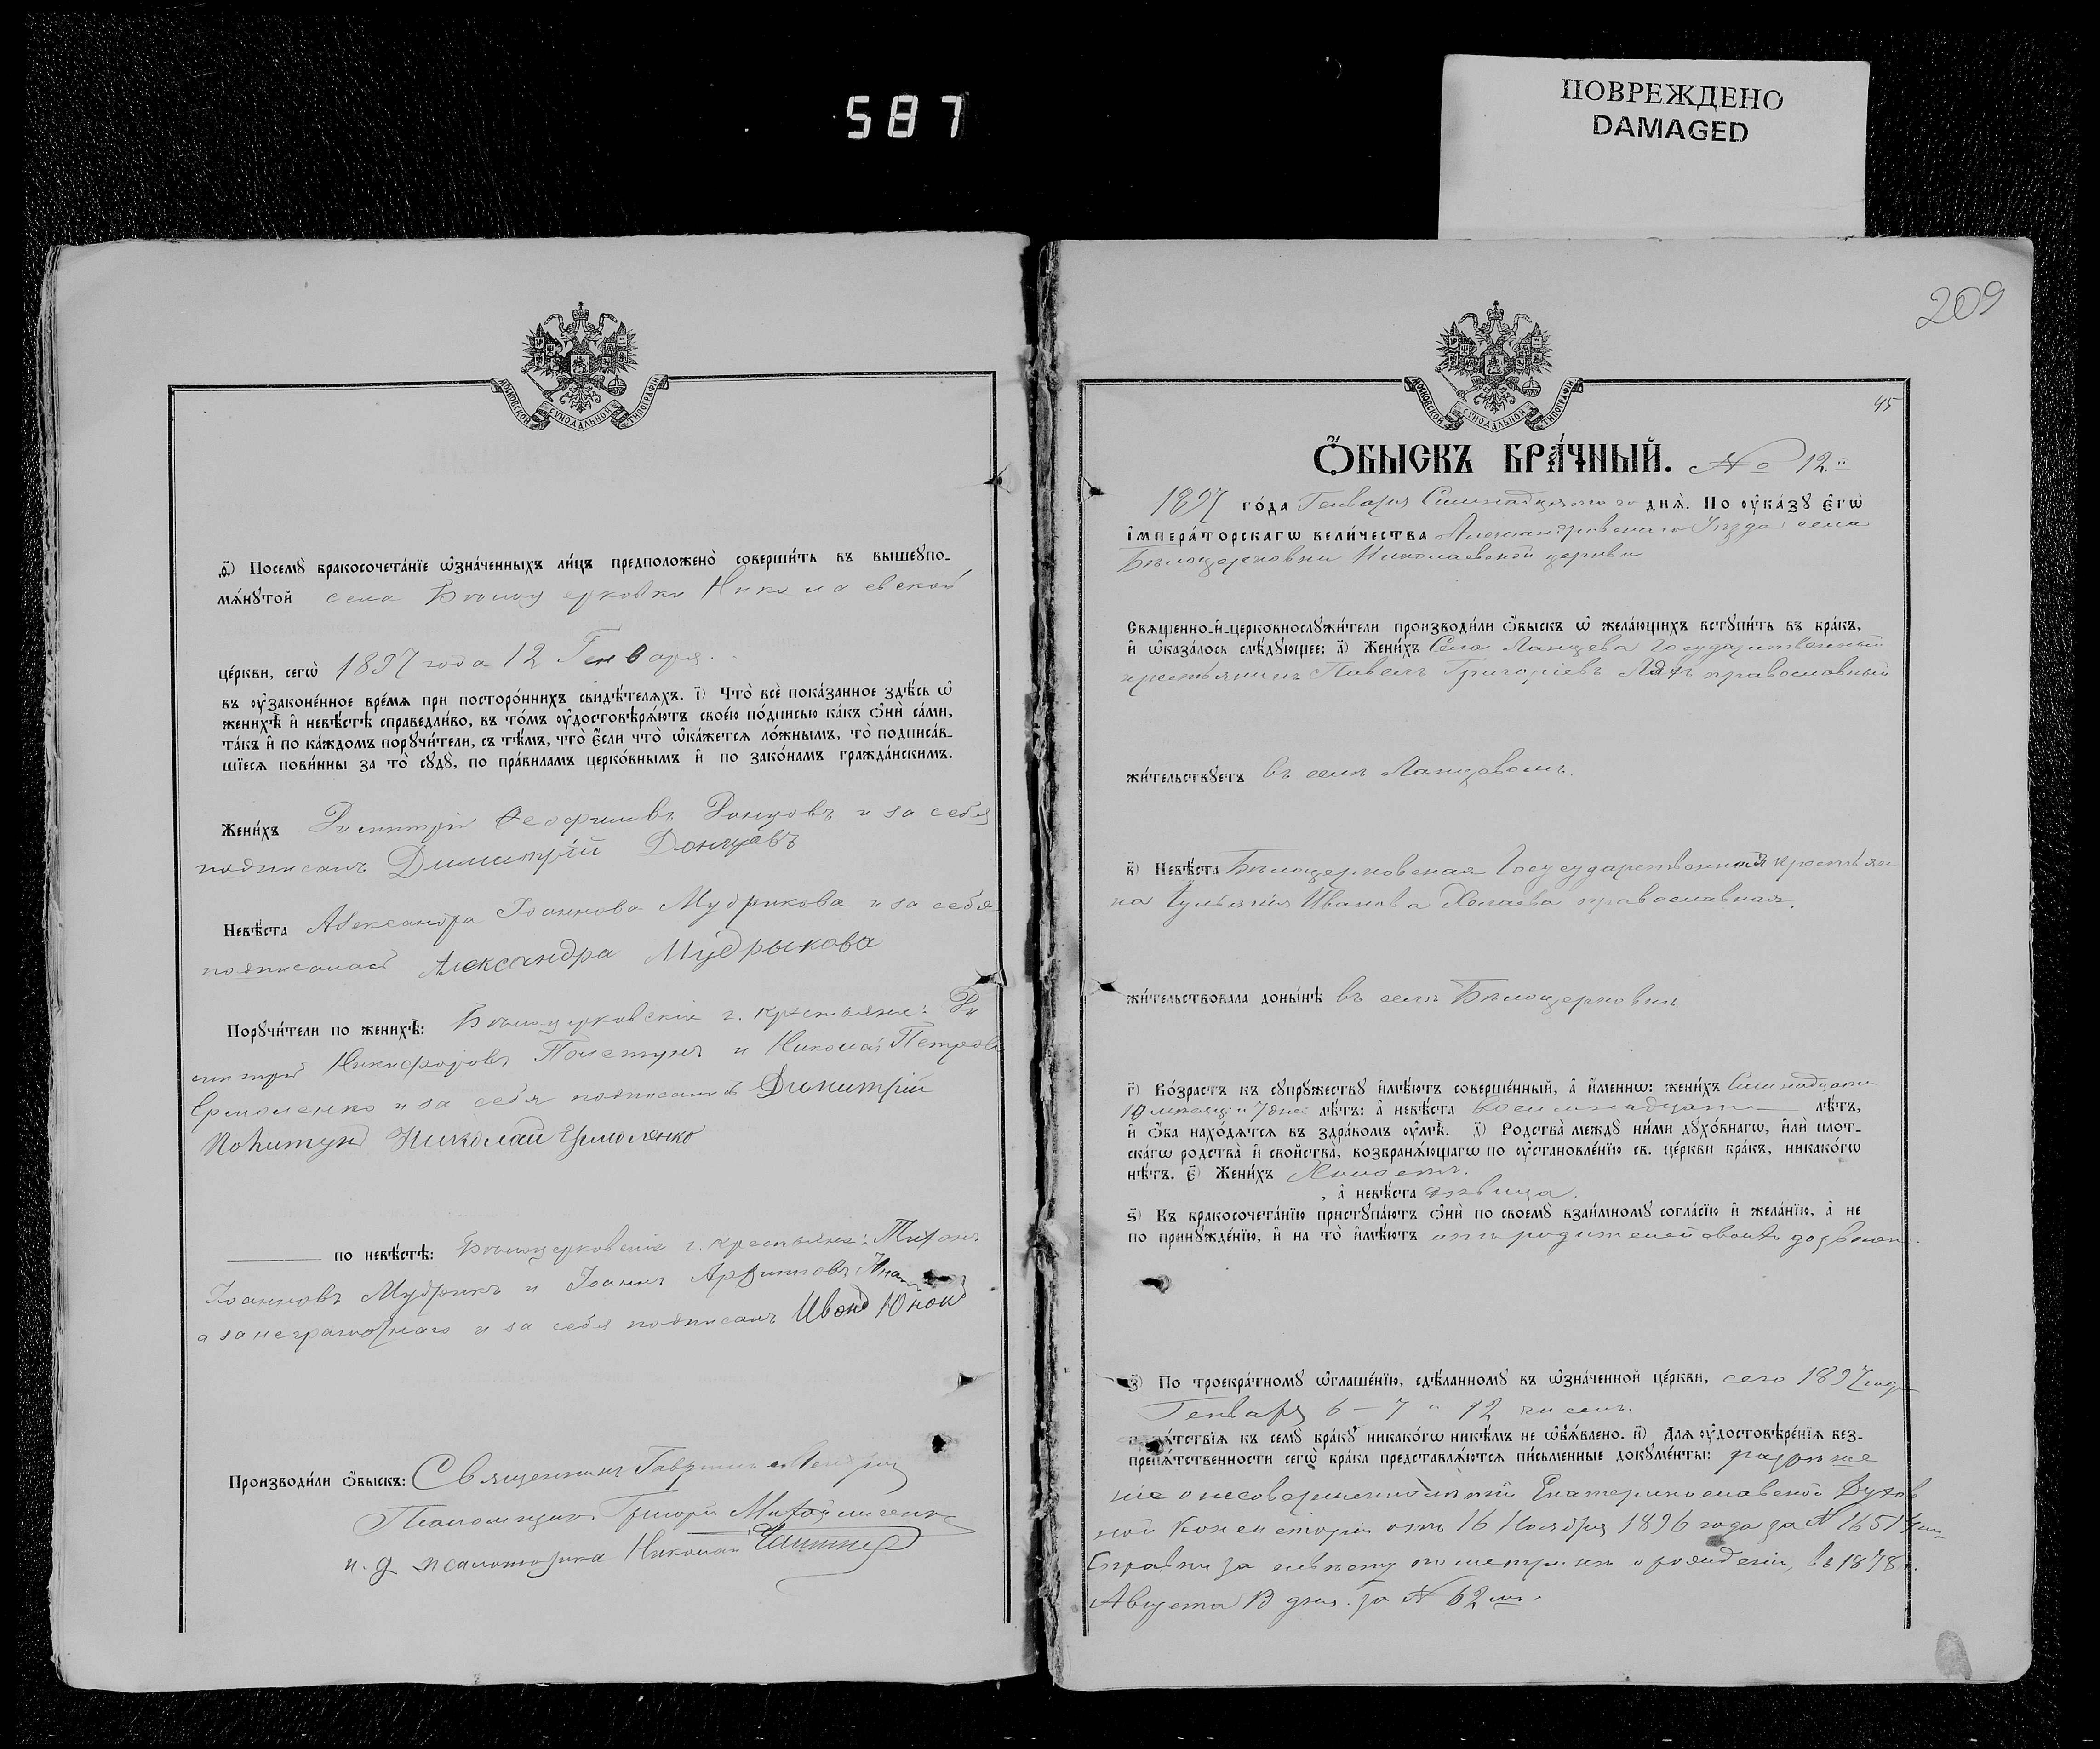 587
ПОВРЕЖДЕНО
DAMAGED
МОСКОВСКОЙ СѴНОДАЛЬНОЙ ТИПОГРАФІИ
Посемꙋ̀ бракосочета́нїе ѡ҆зна́ченныхъ ли́цъ предположено̀ соверши́ть въ вышеꙋпо-
мѧ́нꙋтой села Бѣлоцерковки Николаевской
це́ркви, сегѡ̀ 1897 года 12 Генваря.
въ ᲂу҆зако́ненное вре́мѧ при посторо́ннихъ свидѣ́телѧхъ. і҃) Что̀ всѐ пока́занное здѣ́сь ѡ҆
женихѣ̀ и҆ невѣ́стѣ справедли́во, въ то́мъ ᲂу҆достовѣрѧ́ютъ свое́ю по́дписью ка́къ ѻ҆нѝ са́ми,
та́къ и҆ по ка́ждомъ порꙋчи́тели, съ тѣ́мъ, что̀ є҆́сли что̀ ѡ҆ка́жетсѧ ло́жнымъ, то̀ подписа́в-
шїесѧ пови́нны за то̀ сꙋдꙋ̀, по пра́виламъ церко́внымъ и҆ по зако́намъ гражда́нскимъ.
Жени́хъ Димитрій Феофилов Донцовъ и за себя
подписалъ Димитрій Донцовъ
Невѣ́ста Александра Іоаннова Мудрикова и за себя
подписалась Александра Мудрыкова
Порꙋчи́тели по женихѣ̀: Бѣлоцерковскіе г. крестьяне: Ди
митрій Никифоровъ Полетунъ и Николай Петровъ
Ермоленко и за себя подписались Димитрій
Николай Ермоленко
по невѣ́стѣ: Бѣлоцерковскіе г. крестьяне: Тихонъ
Іоанновъ Мудрикъ и Іоаннъ
а за неграмотнаго и за себя подписалъ Иванъ Юнакъ
Производи́ли ѻ҆́быскъ: Священникъ Гавріилъ
Псаломщикъ Григорій
и. д. псаломщика Николай
209
МОСКОВСКОЙ СѴНОДАЛЬНОЙ ТИПОГРАФІИ
45
Ѻ҆́БЫСКЪ БРА́ЧНЫЙ. № 12
1897 го́да Генваря Семнадцятого днѧ̀. По ᲂу҆ка́зꙋ є҆гѡ̀
і҆мпера́торскагѡ вели́чества Александровскаго Уѣзда села
Бѣлоцерковки Николаевской церкви
Свѧще́нно-и҆-церковнослꙋжи́тели производи́ли ѻ҆́быскъ ѡ҆ жела́ющихъ встꙋпи́ть въ бра́къ,
и҆ ѡ҆каза́лось слѣ́дꙋющее: а҃) Жени́хъ Села Ланцева Государственный
крестьянинъ Павелъ Григоріевъ православный
жи́тельствꙋетъ въ селѣ Ланцевомъ.
в҃) Невѣ́ста Бѣлоцерковская Государственная крестьян
ка Іуліанія Иванова православная.
жи́тельствовала доны́нѣ въ селѣ Бѣлоцерковкѣ.
г҃) Во́зрастъ къ сꙋпрꙋ́жествꙋ и҆мѣ́ютъ соверше́нный, а҆ и҆́меннѡ: жени́хъ Семнадцати
10 месяц. и 7 дней лѣ́тъ: а҆ невѣ́ста восемнадцати лѣ́тъ,
и҆ ѻ҆́ба нахо́дѧтсѧ въ здра́вомъ ᲂу҆мѣ̀. д҃) Родства̀ междꙋ̀ ни́ми дꙋхо́внагѡ, и҆лѝ плот-
ска́гѡ родства̀ и҆ сво́йства, возбранѧ́ющагѡ по ᲂу҆становле́нїю св. це́ркви бра́къ, никако́гѡ
нѣ́тъ. є҃) Жени́хъ Холостъ.
, а҆ невѣ́ста дѣвица.
ѕ҃) Къ бракосочета́нїю пристꙋпа́ютъ ѻ҆нѝ по своемꙋ̀ взаи́мномꙋ согла́сїю и҆ жела́нїю, а҆ не
по принꙋжде́нїю, и҆ на то̀ и҆мѣ́ютъ отъ родителей своихъ дозволен.
По троекра́тномꙋ ѡ҆глаше́нїю, сдѣ́ланномꙋ въ ѡ҆зна́ченной це́ркви, сего 1897 года
Генваря 6 – 7 и 12 числ.
ѧ́тствїѧ къ семꙋ̀ бра́кꙋ никако́гѡ никѣ́мъ не ѡ҆б̾ѧ́влено. и҃) Для ᲂу҆достовѣре́нїѧ без-
препѧ́тственности сегѡ̀ бра́ка представлѧ́ютсѧ пи́сьменные докꙋме́нты: разрѣше
ніе о несовершеннолѣтіи Екатеринославской Духов
ной Консисторіи отъ 16 Ноября 1896 года за № 16514
Справка за невѣсту по метрикѣ о рожденіи, въ 1878 г.
Августа 13 дня. за № 62